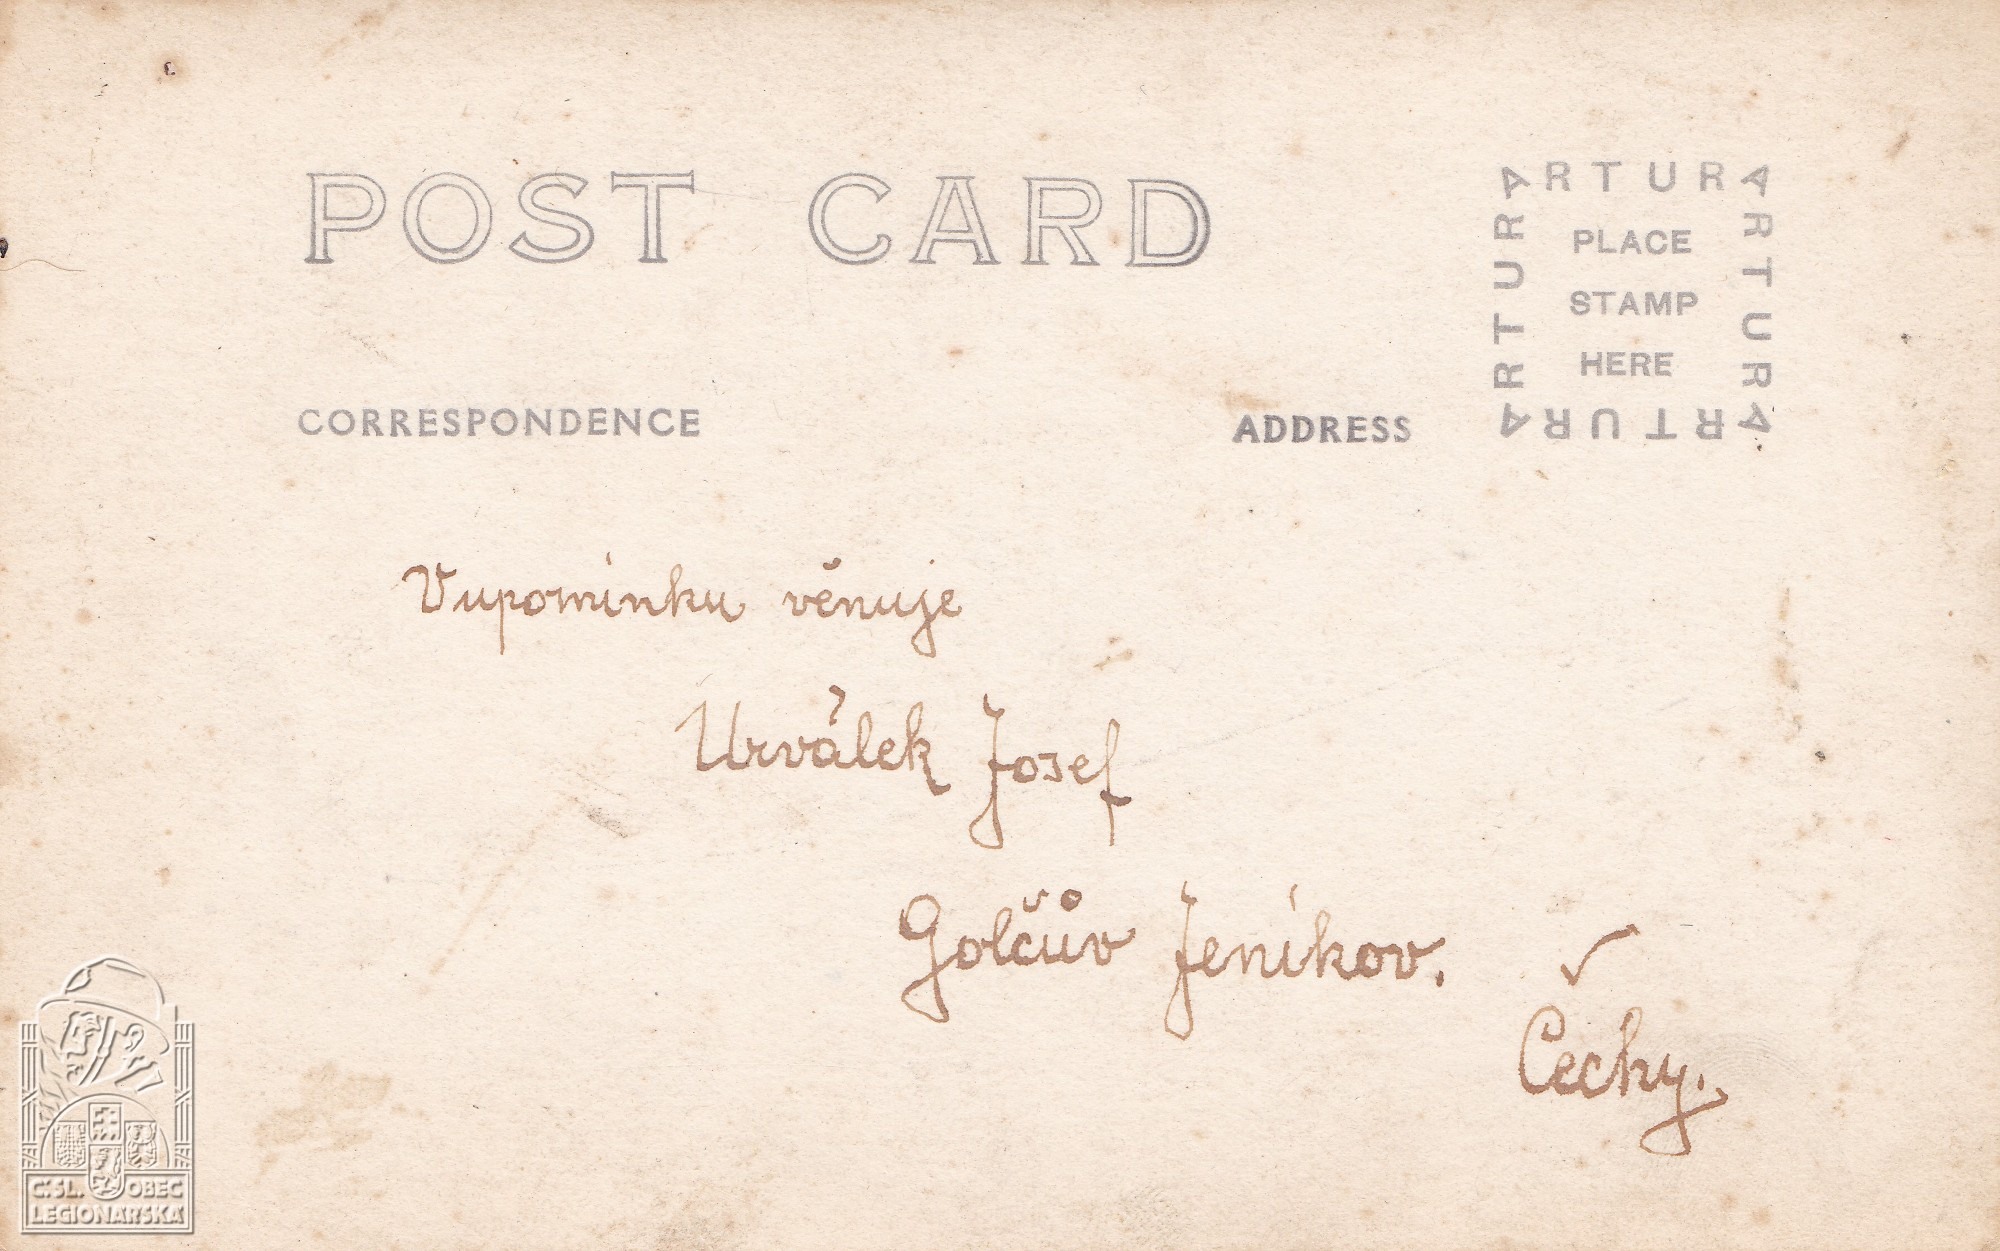 POST CARD
ARTURA
ARTURA
ARTURA
ARTURA
PLACE
STAMP
HERE
CORRESPONDENCE
ADDRESS
Vupomínku věnuje
Urválek Josef
Golčův Jeníkov.
Čechy.
Č.SL. OBEC
LEGIONÁŘSKÁ